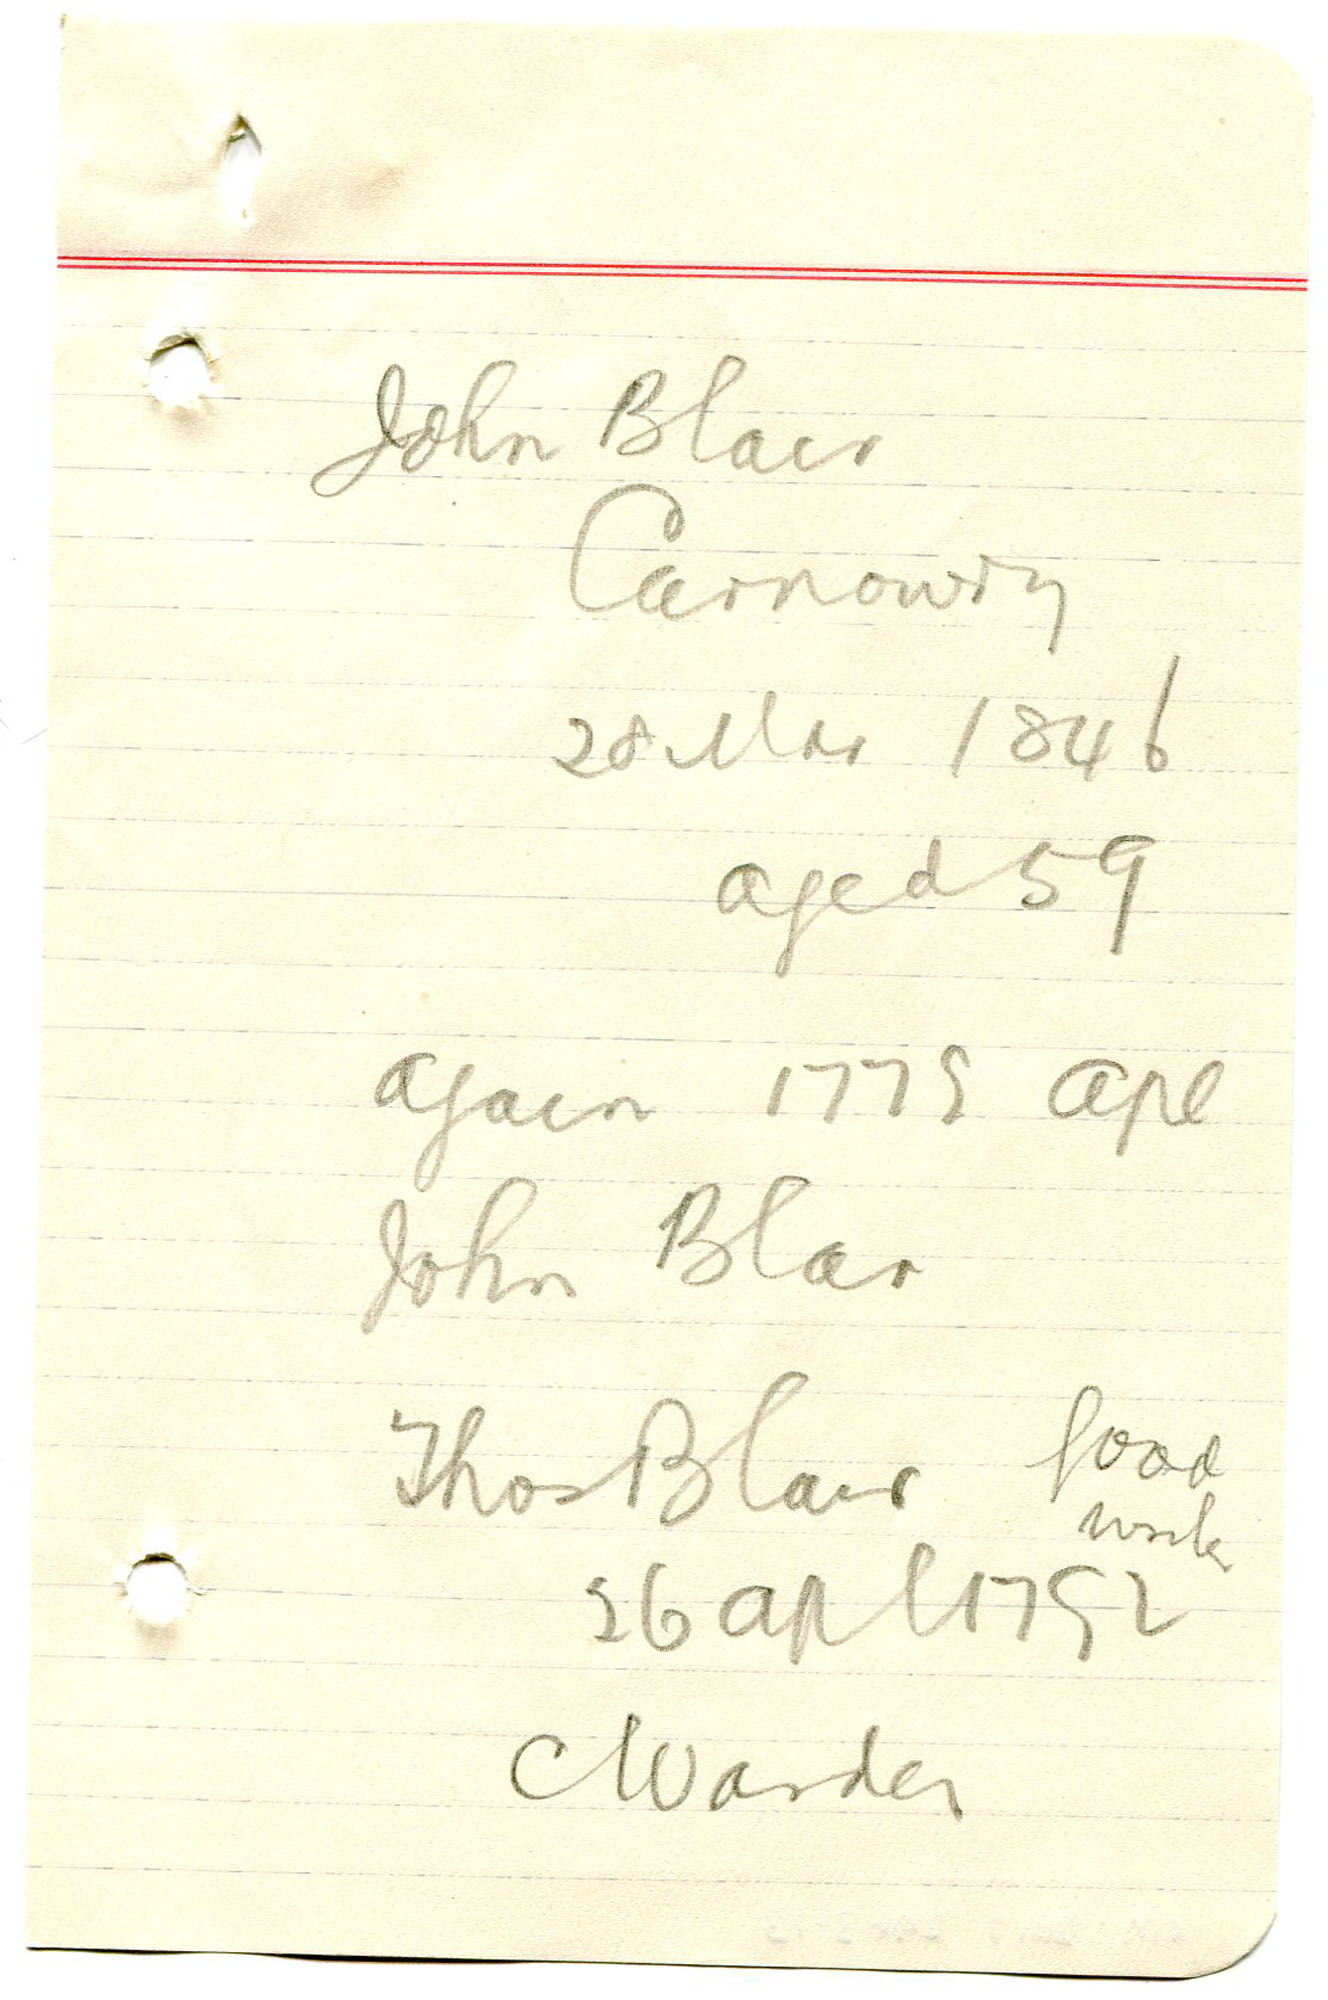 John Blair
Carnowry
28 Mar 1846
aged 59
again 1779 Apl
John Blar
Thos Blair good
work
26 apl 1792
C Warden